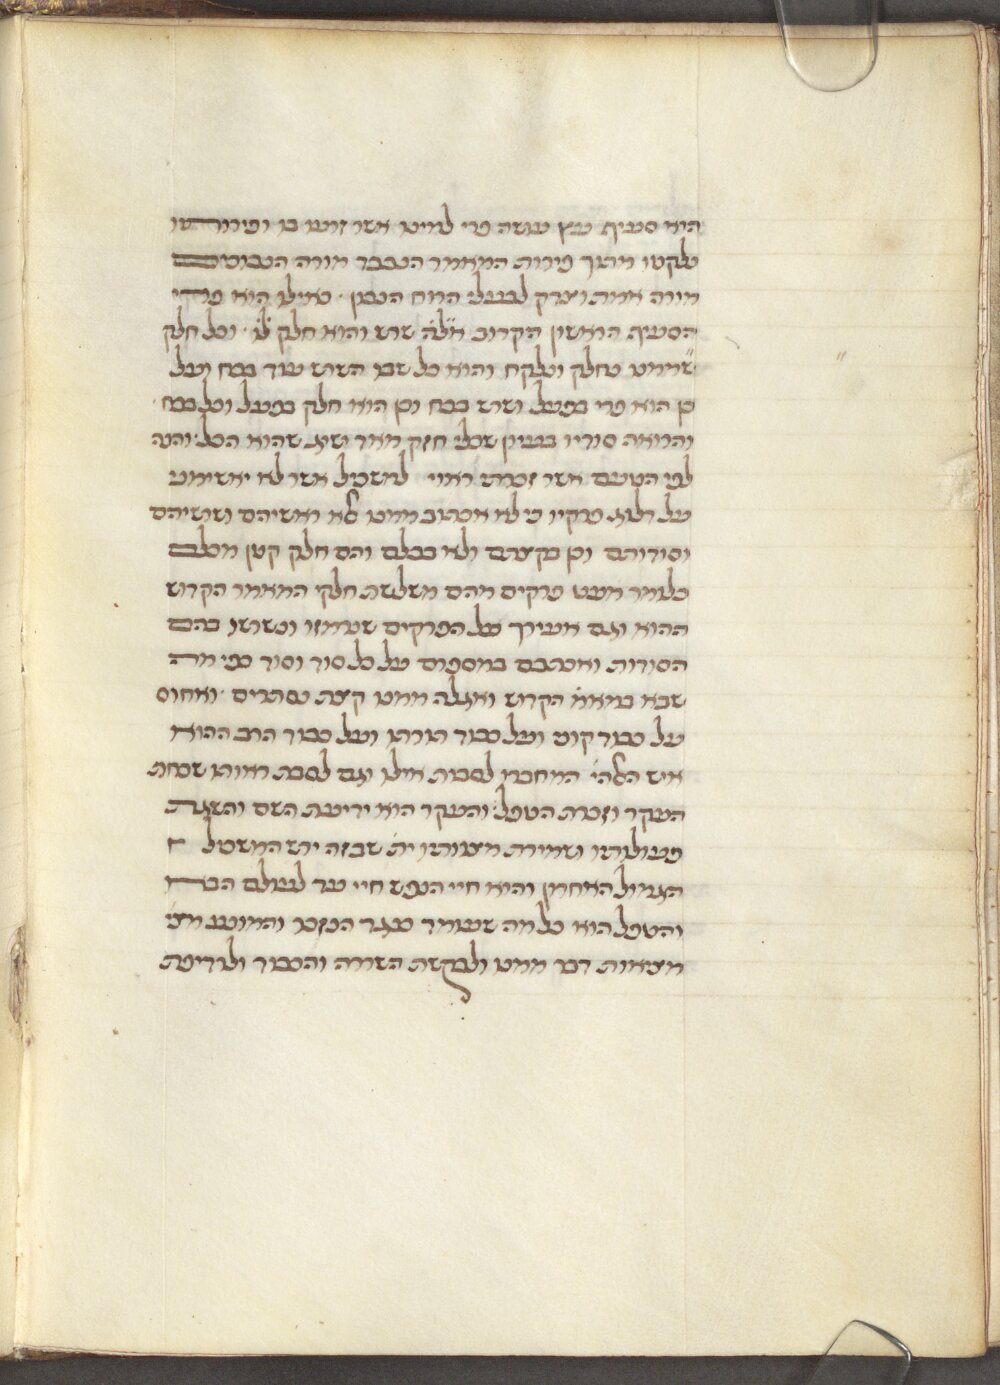 היא סעיף עץ עושה פרי למינו אשר זרעו בו ופירותיו
נלקטו מתוך פירות המאמר הנכבד מורה הנבוכים
מורה אמת וצדק לבעלי הרוח הנכון ׳ ואילו הוא פרי
הסעיף הראשון הקרוב אליה שרש והוא חלק לו ׳ וכל חלק
שממנו נחלק ונלקח והוא כל שבו השרש עוד בכח ועל
כן הוא פרי בפועל ושרש בכח וכן הוא חלק בפועל וכל בכח ׳
והרואה סודיו בעיון שכלי חזק מאד ישיג שהוא הכל והנה
לפי הטעם אשר זכרתי ראוי למשכיל אשר לא יאשימני
על דלוג פרקיו כי לא אכתוב ממנו אלא ראשיהם ושרשיהם
וסודותם וכן בקצתם ולא בכלם והם חלק קטן מכלם
כלומר מעט פרקים מהם משלשת חלקי המאמר הקדוש
ההוא וגם אעריך על הפרקים שירמזו ונשרשו בהם
הסודות ואכתבם במספרם על כל סוד וסוד כפי מה
שבא במאמ׳ הקדוש ואגלה ממנו קצת נסתרים ׳ ואחוס
על כבוד קוני ועל כבוד תורתו ועל כבוד הרב ההוא
איש האלהי׳ המחברו לסבות אילו וגם לסבת ראותי שכחת
העקר וזכרת הטפל והעקר הוא ידיעת השם והשגת
פעולותיו ושמירת מצותיו ית׳ שבזה ירש המשכיל
הגמול האחרון והוא חיי הנפש חיי עד לעולם הבא
והטפל הוא כל מה שעומד כנגד הנזכר והמונע מצי׳
מציאות דבר ממנו ולבקשת השררה והכבוד ולרדיפת